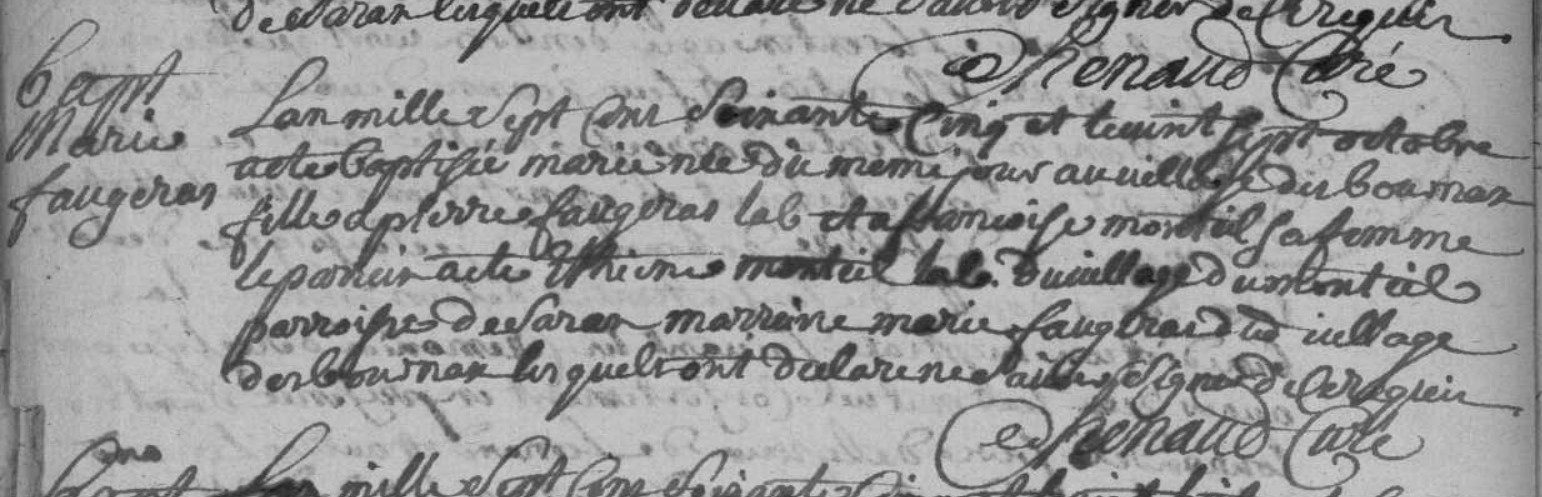 de Saran lesquels ont declaré ne scavoir signer de ce requis
Renaud Curé
bapt
Marie
faugeras
Lan mille Sept Cens Soixante Cinq et le vint Sept octobre
a ete baptisée marie née du meme jour au village des bournax
fille a pierre faugeras lab et a francoise monteil sa femme
le parein a ete Ethiene monteil lab. du village du monteil
parroisse de Saran marreine marie faugeras du village
des bournax lesquels ont declaré ne scavoir signer de ce requis
Renaud Curé
Lan mille Sept Cens Soixante